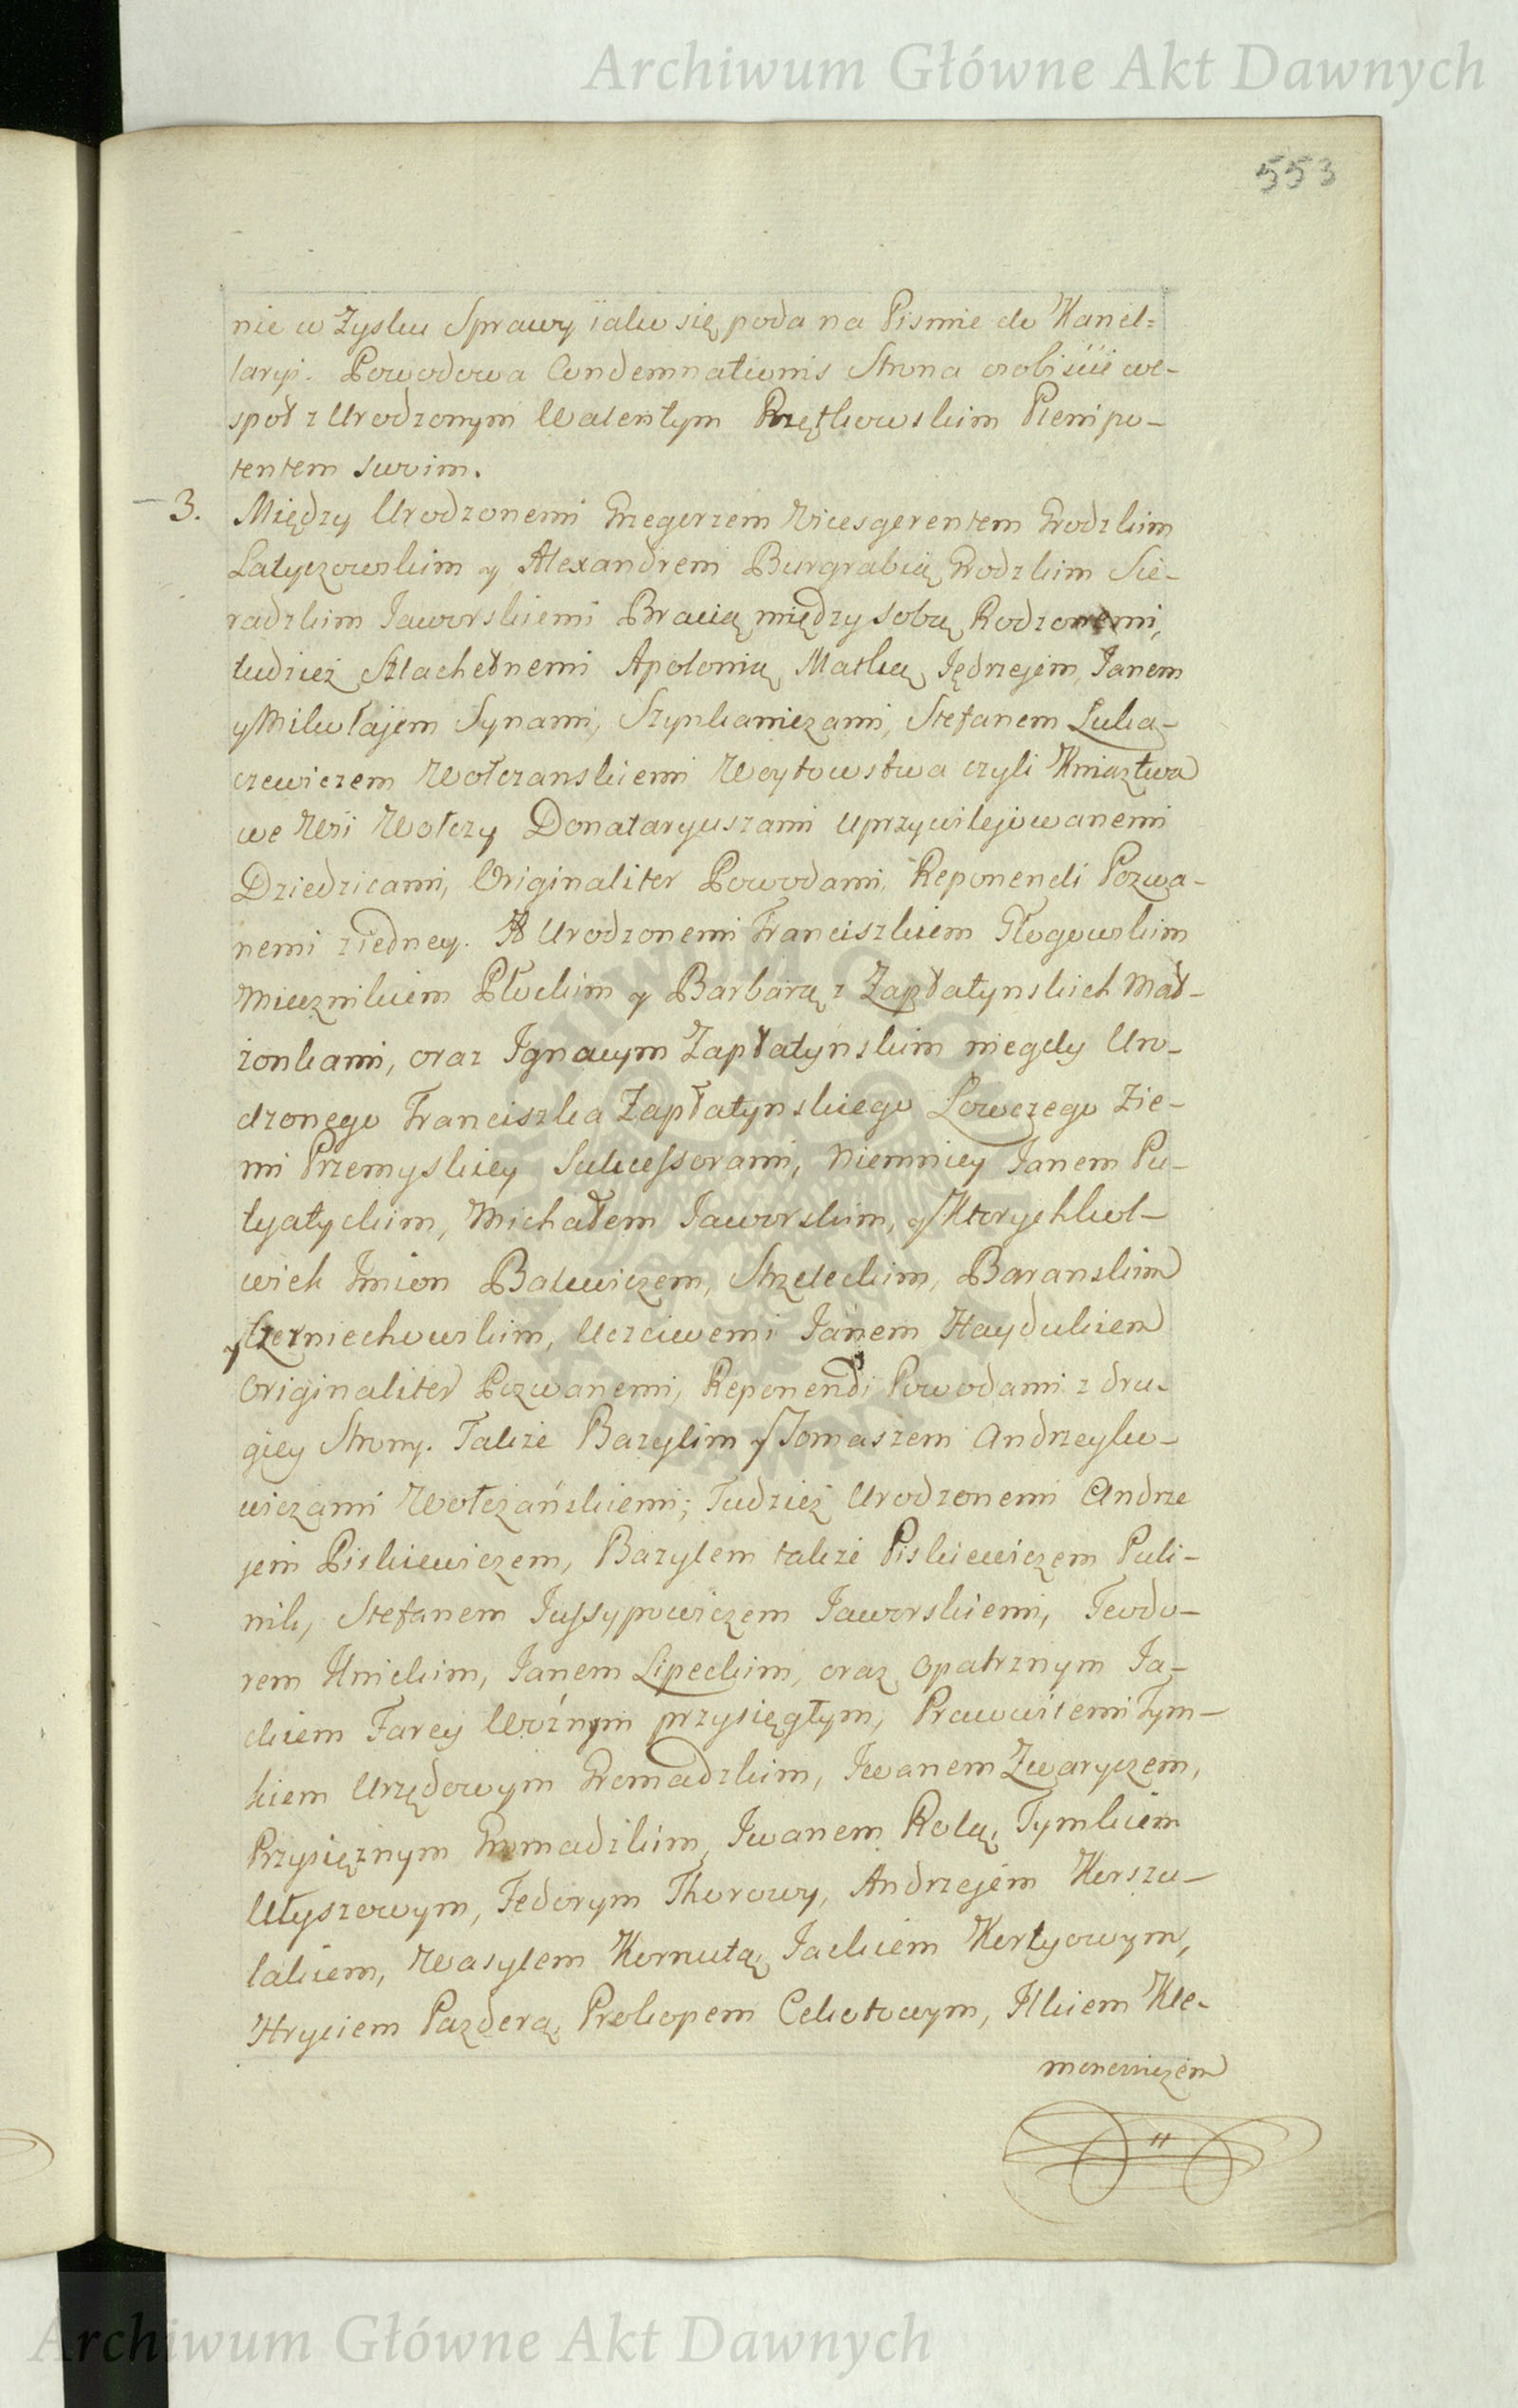 Archiwum Główne Akt Dawnych
553
nie w Zysku Sprawy iako się poda na Pismie do Kancel=
laryi. Powodowa Condemnationis Strona osobiście we-
społ z Urodzonym Walentym Prętkowskim Plenipo-
tentem swoim.
3. Między Urodzonemi Grzegorzem Vicesgerentem Grodzkim
Latyczowskim y Alexandrem Burgrabią Grodzkim Sie-
radzkim Jaworskiemi Bracią między sobą Rodzonemi,
tudzież Szlachetnemi Apolonią Matką Jędrzejem, Janem
y Mikołajem Synami, Szynkaniczami, Stefanem Luka-
czewiczem Wołczanskiemi Woytowstwa czyli Kniaztwa
we Wsi Wołczy Donataryuszami uprzywilejowanemi
Dziedzicami, Originaliter Powodami, Reponendi Pozwa-
nemi z iedney. A Urodzonemi Franciszkiem Głogowskim
Miecznikiem Płockim y Barbarą z Zapłatynskich Mał-
żonkami, oraz Ignacym Zapłatyńskim niegdy Uro-
dzonego Franciszka Zapłatynskiego Łowczego Zie-
mi Przemyskiey Sukcessorami, niemniey Janem Pu-
tyatyckim, Michałem Jaworskim, y Ktorychkol-
wiek Imion Balewiczem, Strzeleckim, Baranskim
y Czerniechowskim, Uczciwemi Janem Haydukiem
Originaliter Pozwanemi, Reponendi Powodami z dru-
giey Strony. Także Bazylim y Tomaszem Andrzeyko-
wiczami Wołczańskiemi; Tudzież Urodzonemi Andrze
jem Piskiewiczem, Bazylem także Piskiewiczem Puli-
nik, Stefanem Jussypowiczem Jaworskiemi, Teodo-
rem Knickim, Janem Lipeckim, oraz Opatrznym Ja-
ckiem Farey Woźnym przysięgłym, Pracowitemi Tym-
kiem Urzędowym Gromadzkim, Iwanem Zwaryczem,
Przysiężnym Gromadzkim, Iwanem Rolą, Tymkiem
Ułyszowym, Fedorym Thorowy, Andrzejem Korszu-
lakiem, Wasylem Kornutą, Jackiem Kostyowym,
Hryciem Pazderą, Prokopem Cekotowym, Ilkiem Kle-
monowiczem
Archiwum Główne Akt Dawnych